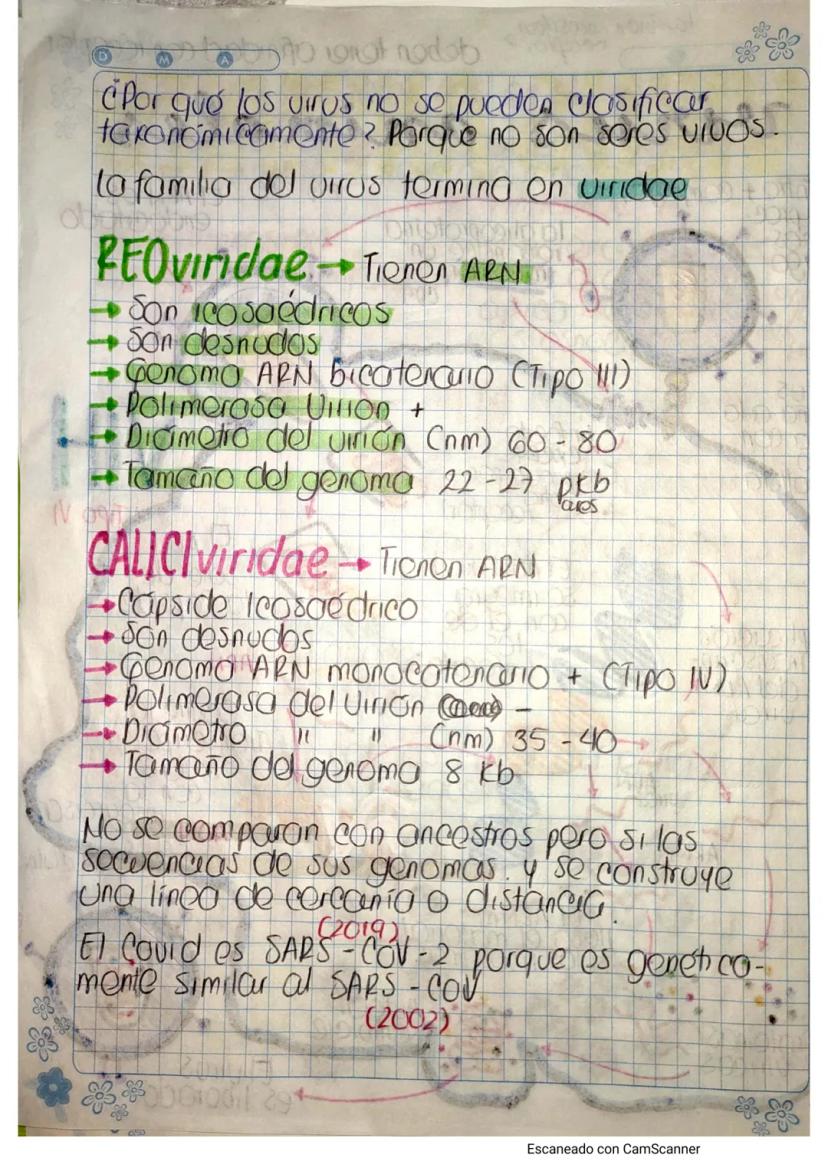 D M A
¿Por qué los virus no se pueden clasificar
taxonómicamente? Porque no son seres vivos.
La familia del virus termina en viridae
REOviridae → Tienen ARN
→ Son icosaédricos
→ Son desnudos
→ Genoma ARN bicatenario (Tipo III)
→ Polimerasa Virión +
→ Diámetro del virión (nm) 60 - 80
→ Tamaño del genoma 22 - 27 pkb
ares
CALICIviridae → Tienen ARN
→ Cápside Icosaédrico
→ Son desnudos
→ Genoma ARN monocatenario + (Tipo IV)
→ Polimerasa del Virión -
→ Diámetro " " (nm) 35 - 40
→ Tamaño del genoma 8 kb
No se comparan con ancestros pero si las
secuencias de sus genomas. y se construye
una línea de cercanía o distancia.
(2019)
El Covid es SARS - COV - 2 porque es genética-
mente similar al SARS - COV
(2002)
Escaneado con CamScanner